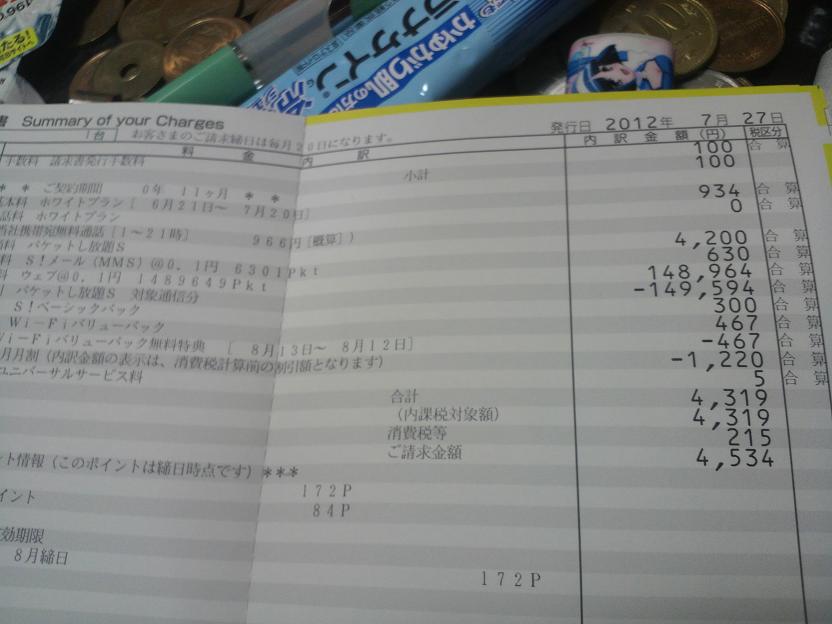 ラナケイン
かゆがり肌の方に
書 Summary of your Charges
発行日 2012年 7月 27日
1台 お客さまのご請求締日は毎月20日になります。
料金内訳 内訳金額(円) 税区分
手数料 請求書発行手数料 100 合算
小計 100
** ご契約期間 0年 11ヶ月 **
基本料 ホワイトプラン[ 6月21日~ 7月20日] 934 合算
ホワイトプラン 0 合算
当社携帯宛無料通話[1~21時] 966円[概算])
パケットし放題S 4,200 合算
S!メール(MMS)@0.1円 6301Pkt 630 合算
ウェブ@0.1円 1489649Pkt 148,964 合算
パケットし放題S 対象通信分 -149,594 合算
S!ベーシックパック 300 合算
Wi-Fiバリューパック 467 合算
Wi-Fiバリューパック無料特典 [ 8月13日~ 8月12日] -467 合算
月月割(内訳金額の表示は、消費税計算前の割引額となります) -1,220 合算
ユニバーサルサービス料 5 合算
合計 4,319
(内課税対象額) 4,319
消費税等 215
ご請求金額 4,534
ント情報(このポイントは締日時点です)***
172P
イント 84P
効期限
8月締日 172P